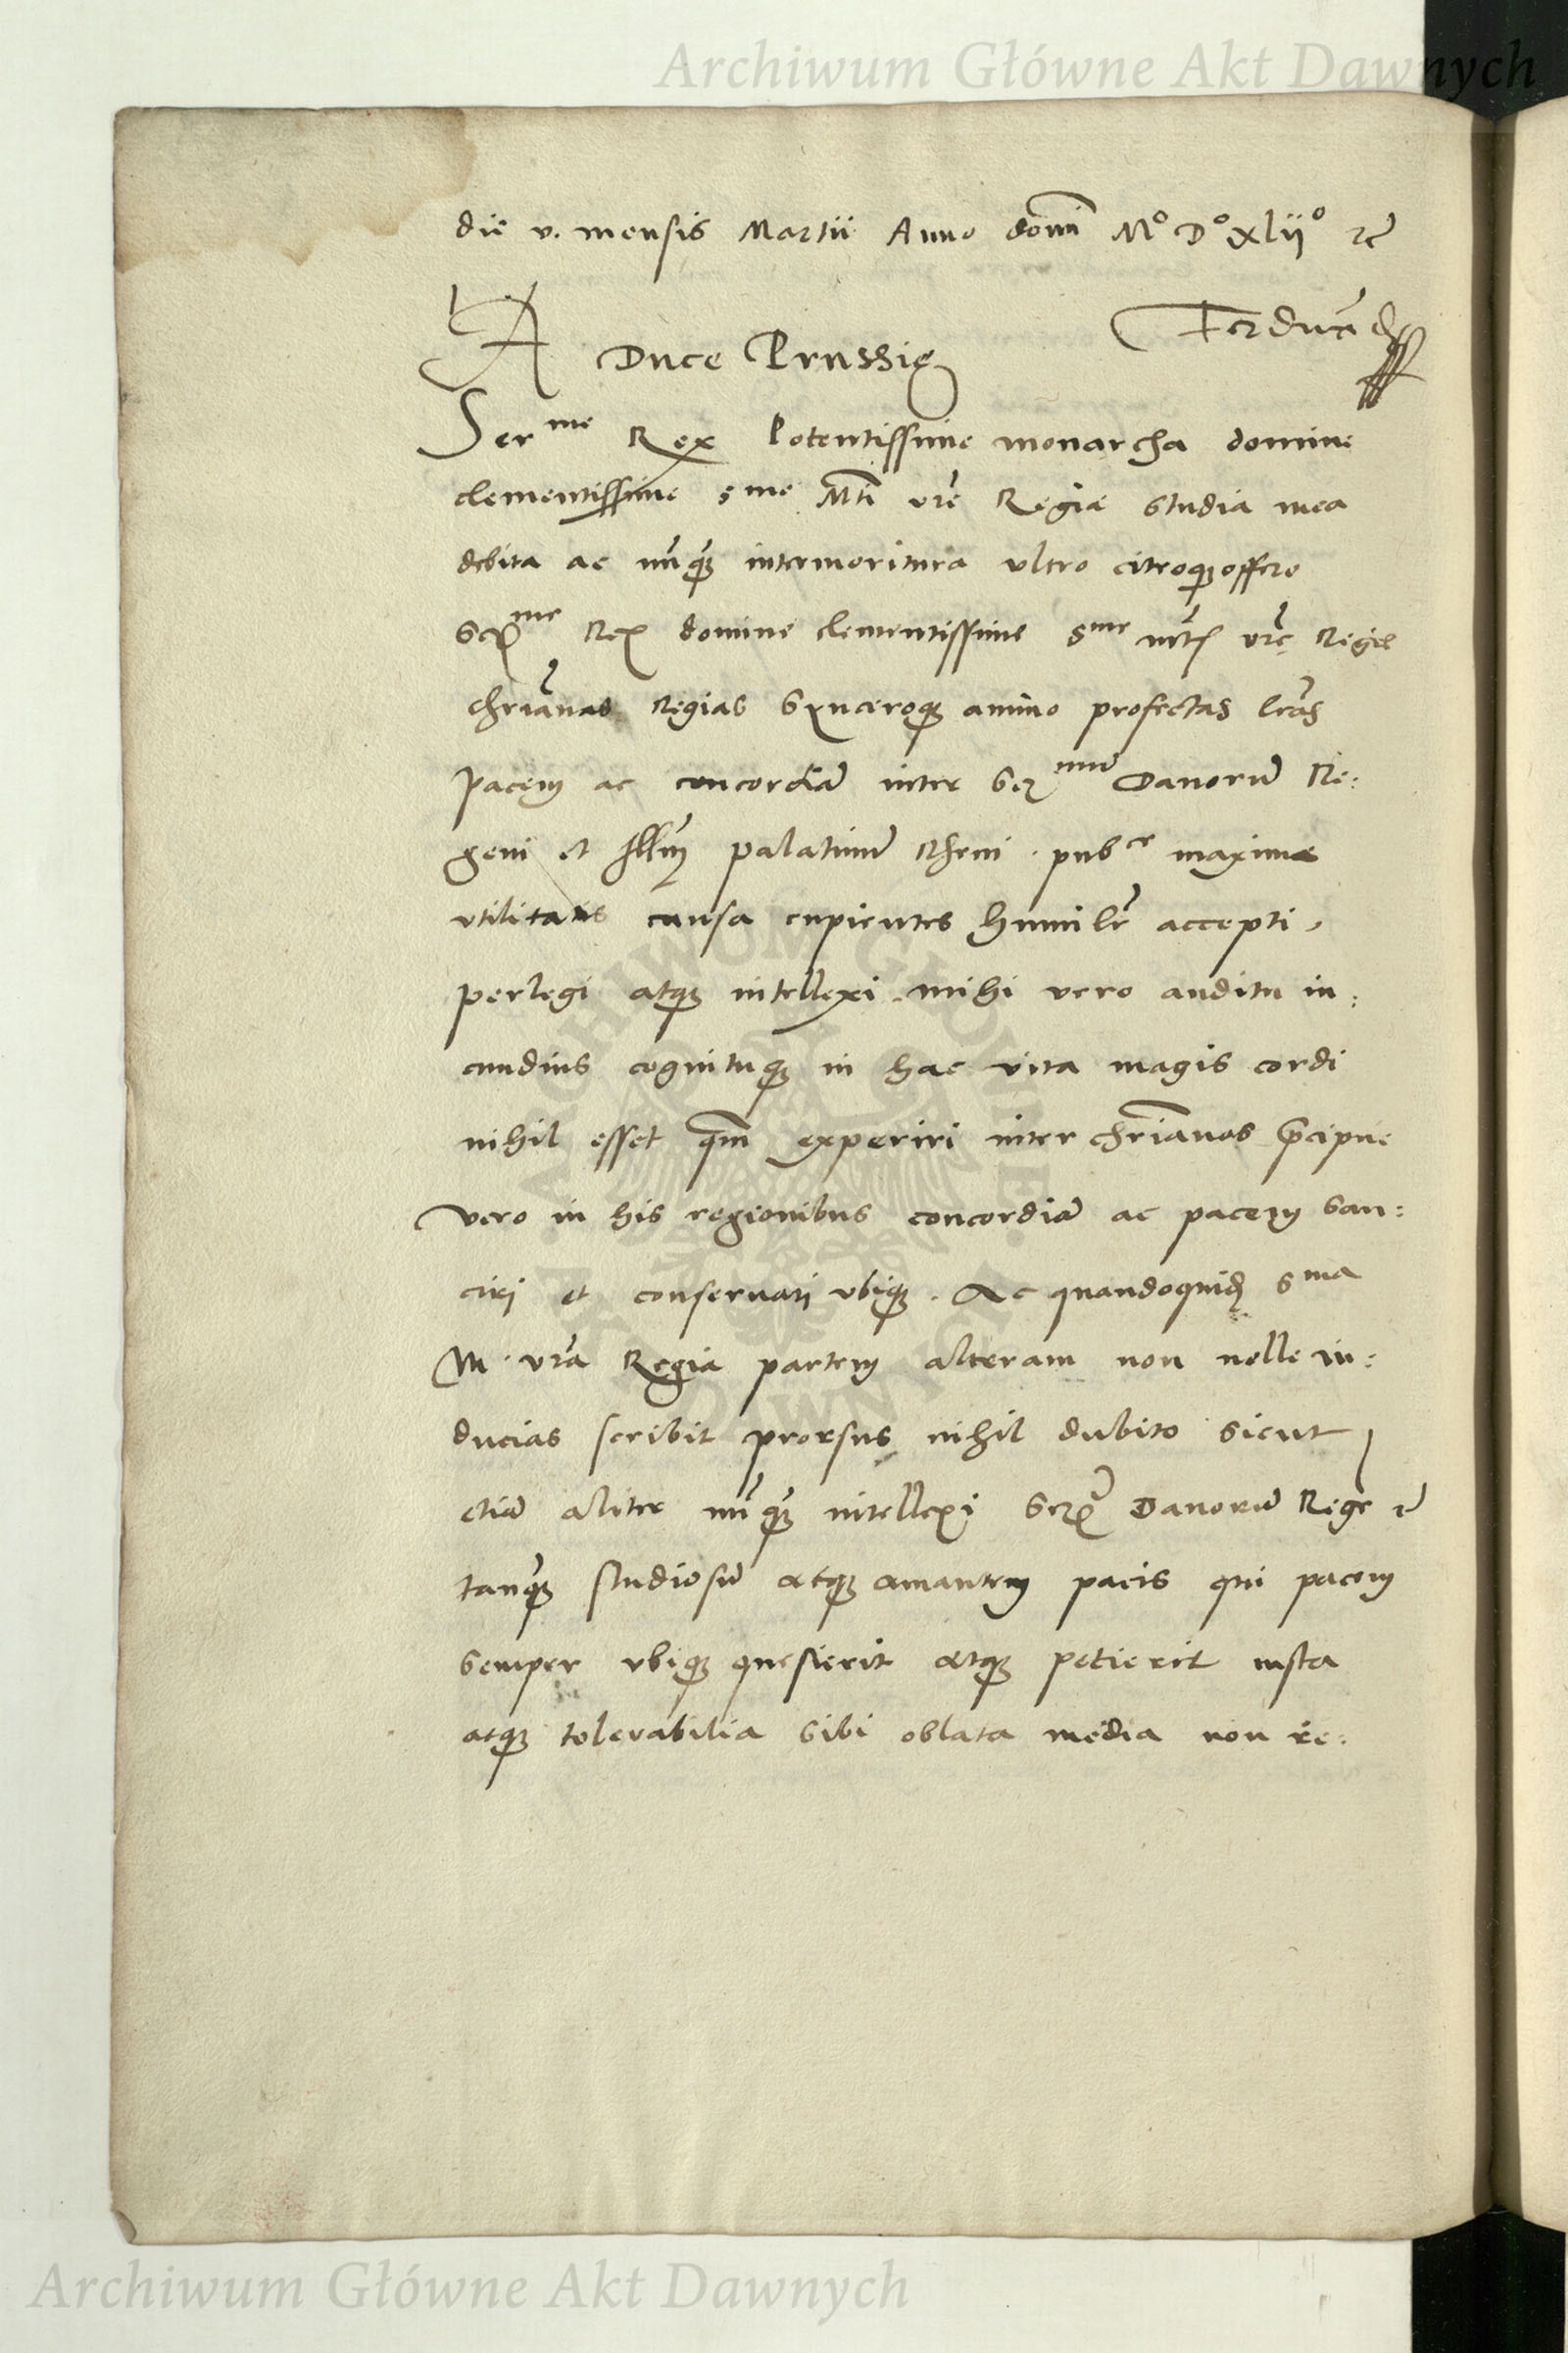 Archiwum Główne Akt Dawnych
die v. mensis Martii Anno domi M° D° xlii° etc
Ferdinand
A Duce Prussię
Serme Rex Potentissime monarcha domine
clementissime sme Mti vre Regiae studia mea
debita ac nunq intermoritura ultro citroq offero
Serme Rex domine clementissime sme mtis vre Regie
chrianas Regias Synceroq animo profectas lras
pacem ac concordia inter Ser mum Danoru Re:
gem et Illm palatinu Rheni pubce maxime
utilitatis causa cupientes humilr accepti,
perlegi atq intellexi. mihi vero auditu iu:
cundius cognituq in hac vita magis cordi
nihil esset qm experiri inter chrianos praecipue
vero in his regionibus concordia ac pacem San:
ciri et conservari ubiq. Ac quandoquid sma
M. vra Regia partem alteram non nolle in:
ducias scribit prorsus nihil dubito sicut
etia aliter nunq intellexi Ser Danoru Rege etc
tanq studiosu atq amantem pacis qui pacem
semper ubiq quesierit atq petierit iusta
atq tolerabilia sibi oblata media non re:
Archiwum Główne Akt Dawnych